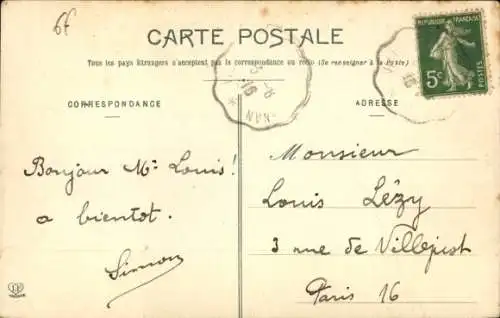 6f
CARTE POSTALE
Tous les pays étrangers n'acceptent pas la correspondance au recto (Se renseigner à la Poste)
CORRESPONDANCE
ADRESSE
REPUBLIQUE FRANÇAISE
5c
POSTES
Bonjour Mr Louis!
a bientot.
Simon
Monsieur
Louis Lézy
3 rue de
Paris 16